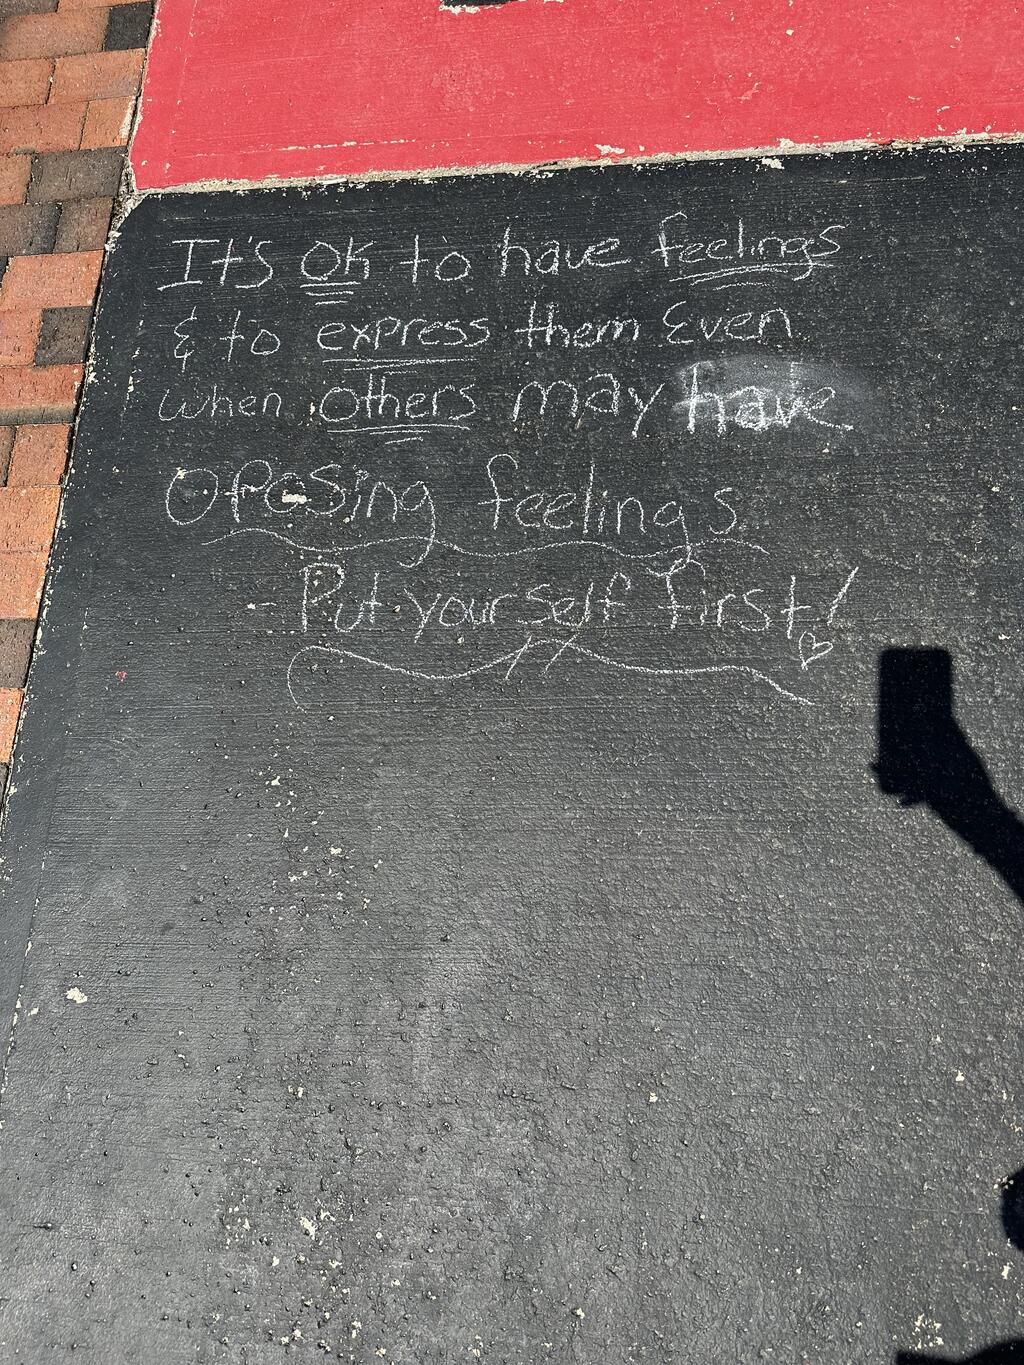 It's OK to have feelings
& to express them Even
when others may have
Oposing feelings
- Put yourself first!